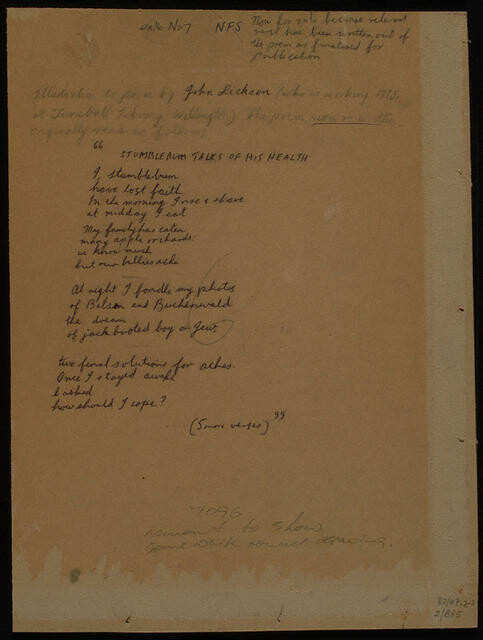 No 7 NFS Now for sale because relevant
verse has been written out of
the poem as finalised for
publication
Illustration to poem by John Dickson (who is working, 1975,
at Turnbull Library, Wellington). The poem, now re-written,
originally read as follows
"
STUMBLEBUM TALKS OF HIS HEALTH
I, stumblebum
have lost faith
In the morning I rise & shave
at midday I eat
My family has eaten
many apple orchards
we know much
but our bellies ache
At night I fondle my photos
of Belsen and Buchenwald
the dream
of jackbooted boy on Jew
two final solutions for aches.
Once I stayed awake
& asked
how should I cope?
.... (5 more verses) "
7096
to show